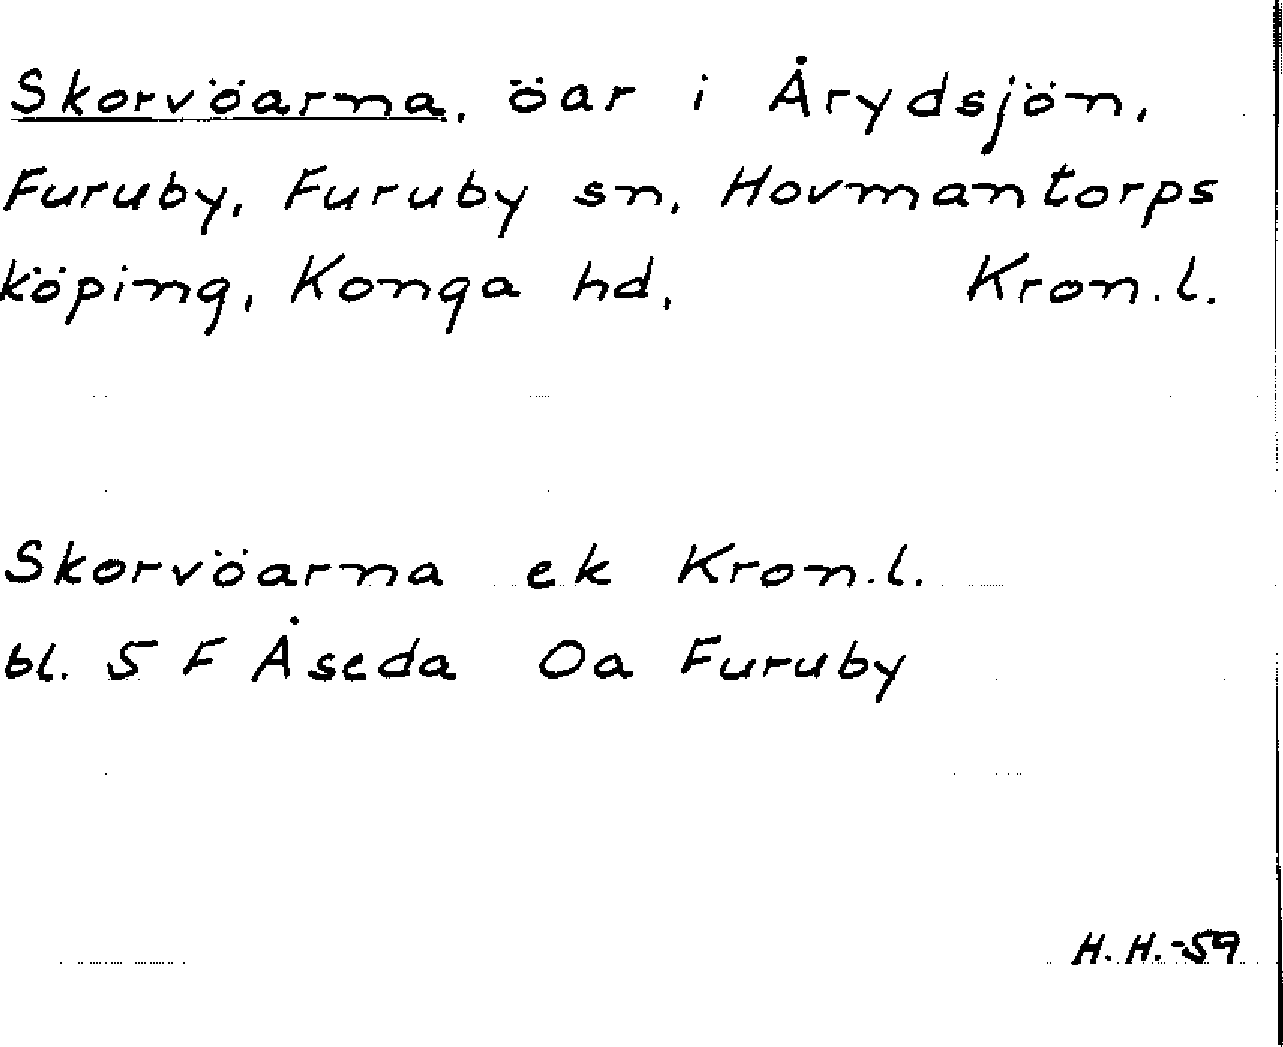 Skorvöarna, öar i Årydsjön,
Furuby, Furuby sn, Hovmantorps
köping, Konga hd, Kron.l.
Skorvöarna ek Kron.l.
bl. 5 F Åseda Oa Furuby
H. H. -59